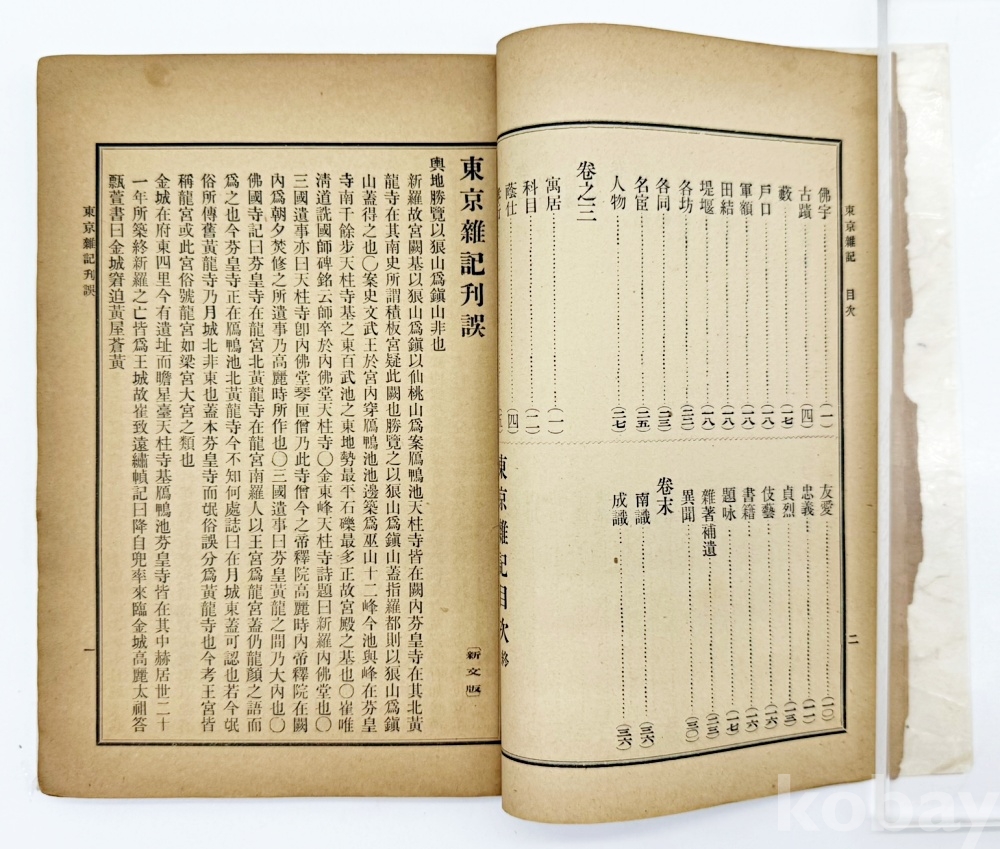 東京雜記 目次
二
佛宇 (一)
古蹟 (四)
藪 (一七)
戶口 (一八)
軍額 (一八)
田結 (一八)
堤堰 (一八)
各坊
各同 (二三)
名臣 (二五)
人物 (二七)
卷之三
寓居 (一)
科目 (二)
蔭仕 (四)
友愛 (一〇)
忠義 (一一)
貞烈 (一三)
伎藝 (一六)
書籍 (一六)
題咏 (一七)
雜著補遺 (二三)
異聞 (三〇)
卷末
南識 (三六)
成識 (三六)
東京雜記目次 終
東京雜記刋誤
〔新文版〕
輿地勝覽以狼山爲鎭山非也
新羅故宮闕基以狼山爲鎭以仙桃山爲案鴈鴨池天柱寺皆在闕內芬皇寺在其北黃
龍寺在其南史所謂積板宮疑此闕也勝覽之以狼山爲鎭山蓋指羅都則以狼山爲鎭
山蓋得之也〇案史文武王於宮內穿鴈鴨池池邊築爲巫山十二峰今池與峰在芬皇
寺南千餘步天柱寺基之東百武池之東地勢最平石礫最多正故宮殿之基也〇崔唯
淸道詵國師碑銘云師卒於內佛堂天柱寺〇金東峰天柱寺詩題曰新羅內佛堂也〇
三國遺事亦曰天柱寺卽內佛堂琴匣僧乃此寺僧今之帝釋院高麗時內帝釋院在闕
內爲朝夕焚修之所遺事乃高麗時所作也〇三國遺事曰芬皇黃龍之間乃大內也〇
佛國寺記曰芬皇寺在龍宮北黃龍寺在龍宮南羅人以王宮爲龍宮蓋仍龍顏之語而
爲之也今芬皇寺正在鴈鴨池北黃龍寺今不知何處誌曰在月城東蓋可認也若今氓
俗所傳舊黃龍寺乃月城北非東也蓋本芬皇寺而氓俗誤分爲黃龍寺也今考王宮皆
稱龍宮或此宮俗號龍宮如梁宮大宮之類也
金城在府東四里今有遺址而瞻星臺天柱寺基鴈鴨池芬皇寺皆在其中赫居世二十
一年所築終新羅之亡皆爲王城故崔致遠繡幀記曰降自兜率來臨金城高麗太祖答
甄萱書曰金城窘迫黃屋蒼黃
東京雜記刋誤
一
kobay